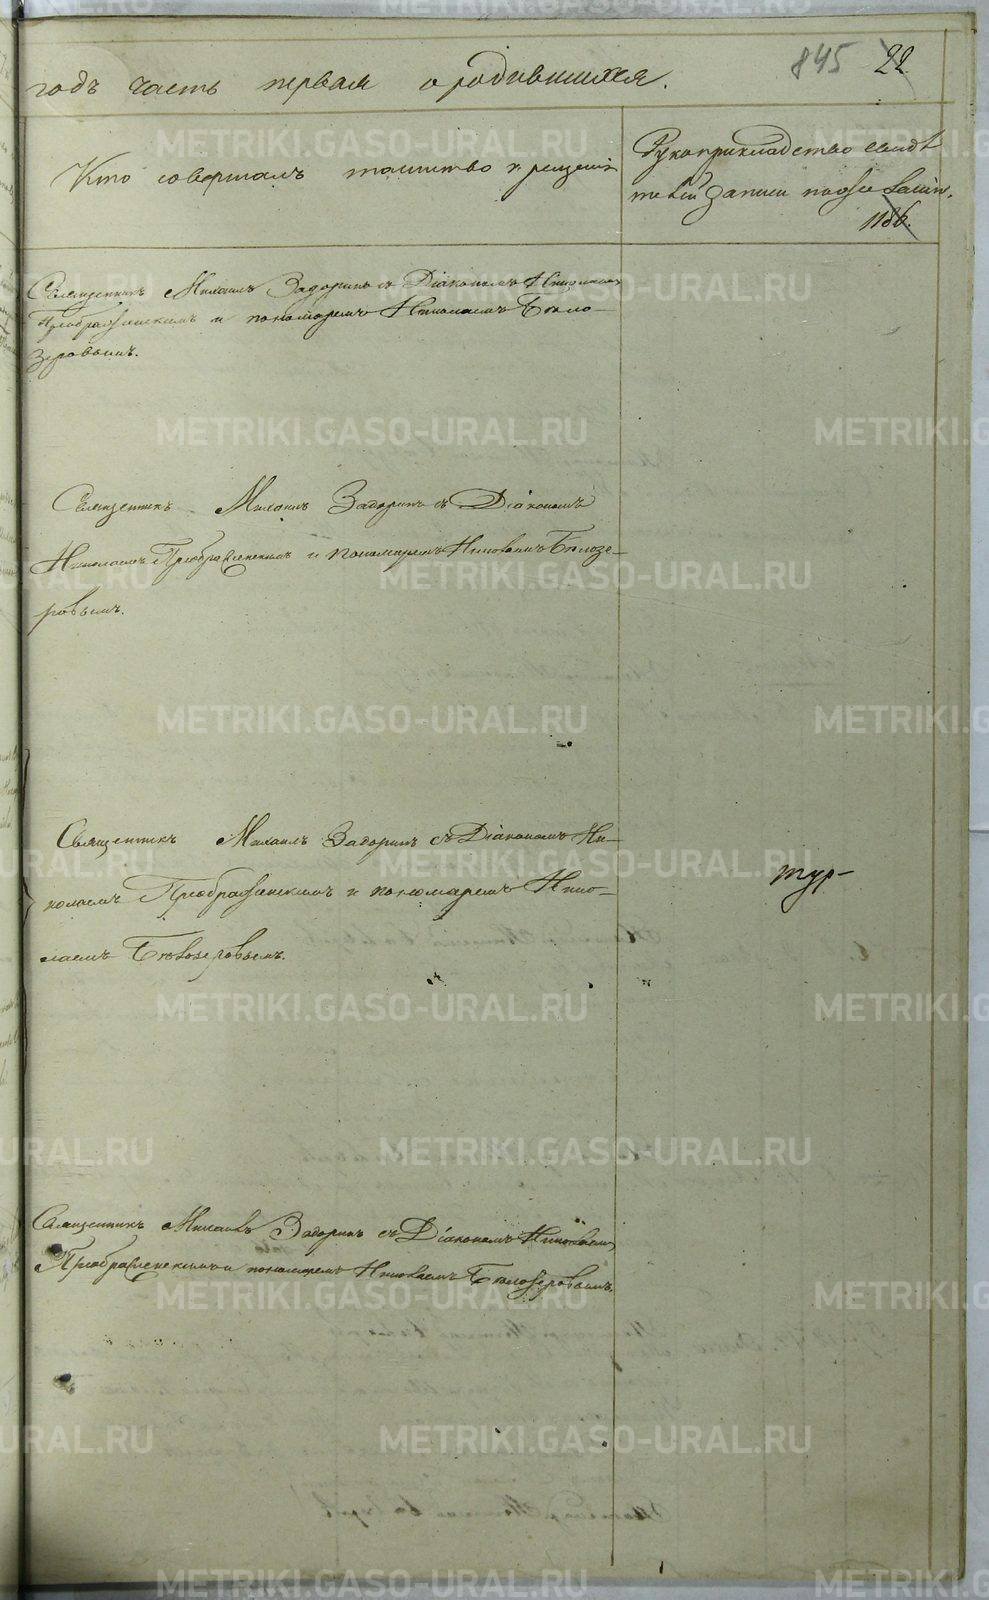 845 22
годъ часть первая о родившихся.
Кто совершалъ таинство крещенія
Рукоприкладство свидѣ
телей записи по
1186.
Священникъ Михаилъ Задоринъ съ Діакономъ Николаемъ
Преображенскимъ и пономаремъ Николаемъ Бѣло-
зеровымъ.
Священникъ Михаилъ Задоринъ съ Діакономъ
Николаемъ Преображенскимъ и пономаремъ Николаемъ Бѣлозе-
ровымъ.
Священникъ Михаилъ Задоринъ съ Діакономъ Ни-
колаемъ Преображенскимъ и пономаремъ Нико-
лаемъ Бѣлозеровымъ.
тур-
Священникъ Михаилъ Задоринъ съ Діакономъ Николаемъ
Преображенскимъ и пономаремъ Николаемъ Бѣлозеровымъ.
METRIKI.GASO-URAL.RU